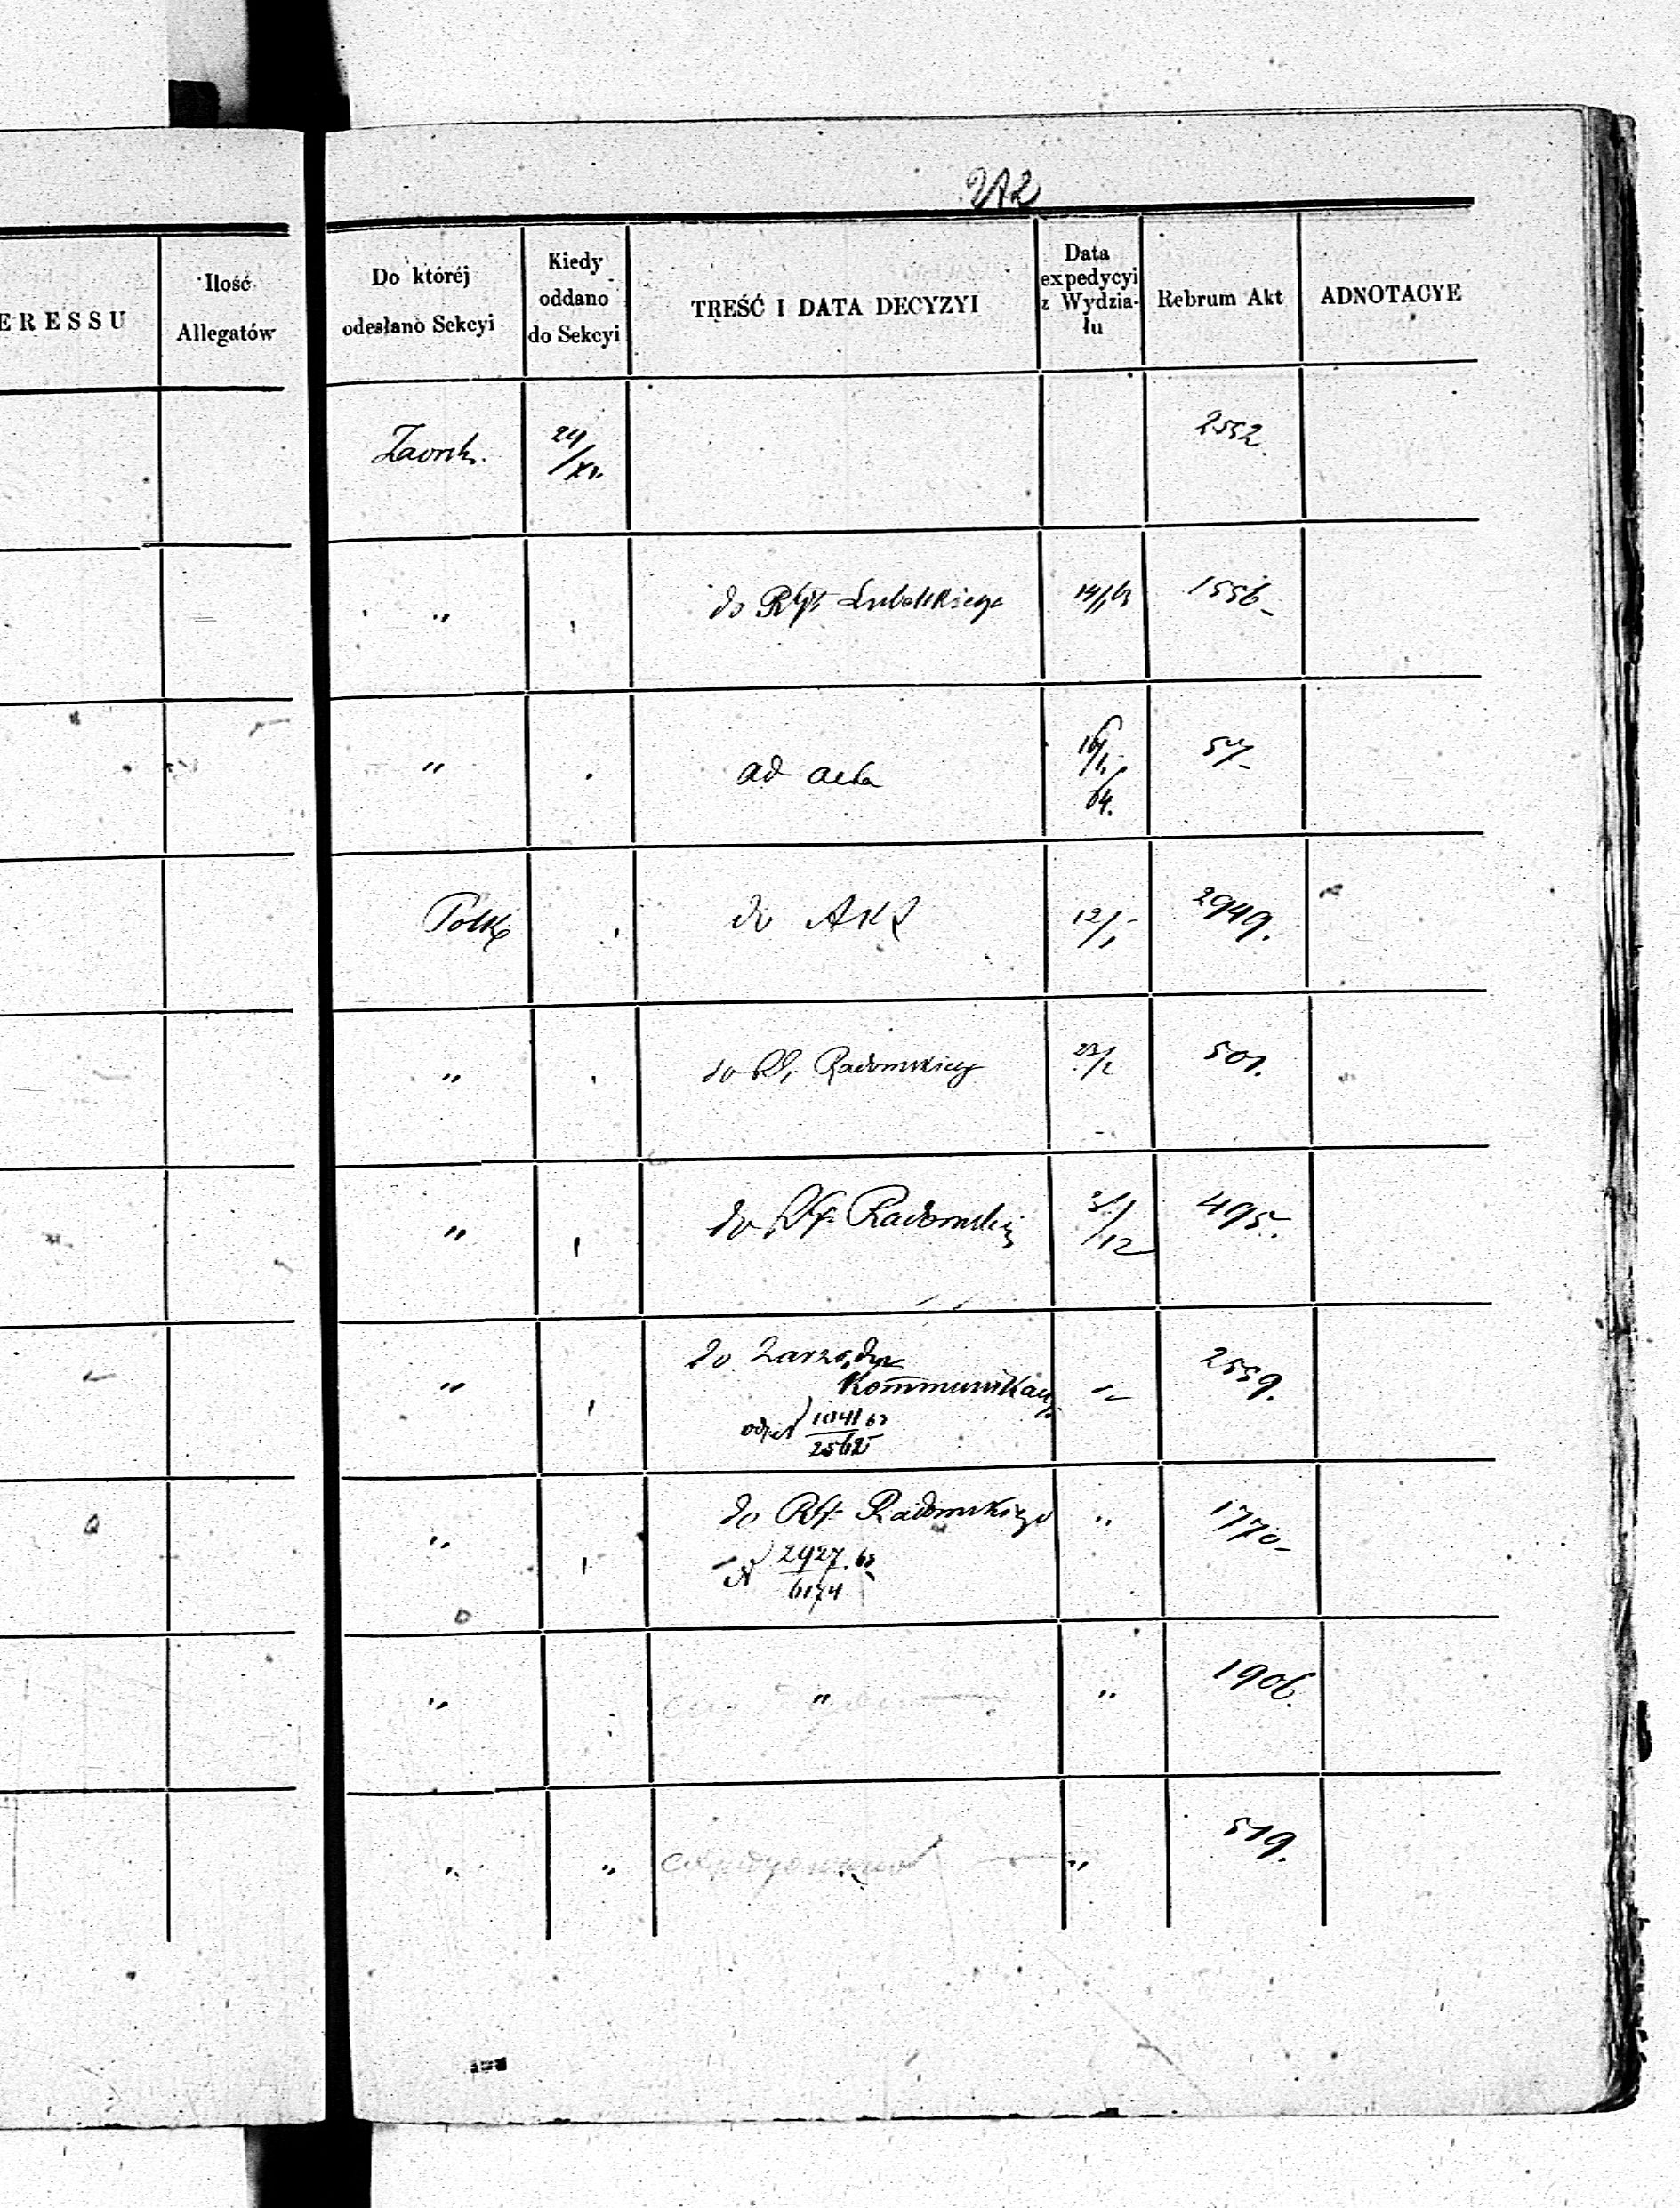 212
ERESSU
Ilość
Allegatów
Do któréj
odesłano Sekcyi
Kiedy
oddano
do Sekcyi
TREŚĆ I DATA DECYZYI
Data
expedycyi
z Wydzia-
łu
Rebrum Akt
ADNOTACYE
24/XI. 2552.
" do Lubelskiego 14/1 63 1556
" ad acta 57
do 12/1 2949.
" do Radomskieg 23/2 501.
" do Radomski 12 495.
" do Zarządu
Kommunikacyj 2559.
1041 63
2562
" do Radomskiego " 1770
N 2927. 63
6174
" " " 1906.
" " " 519.